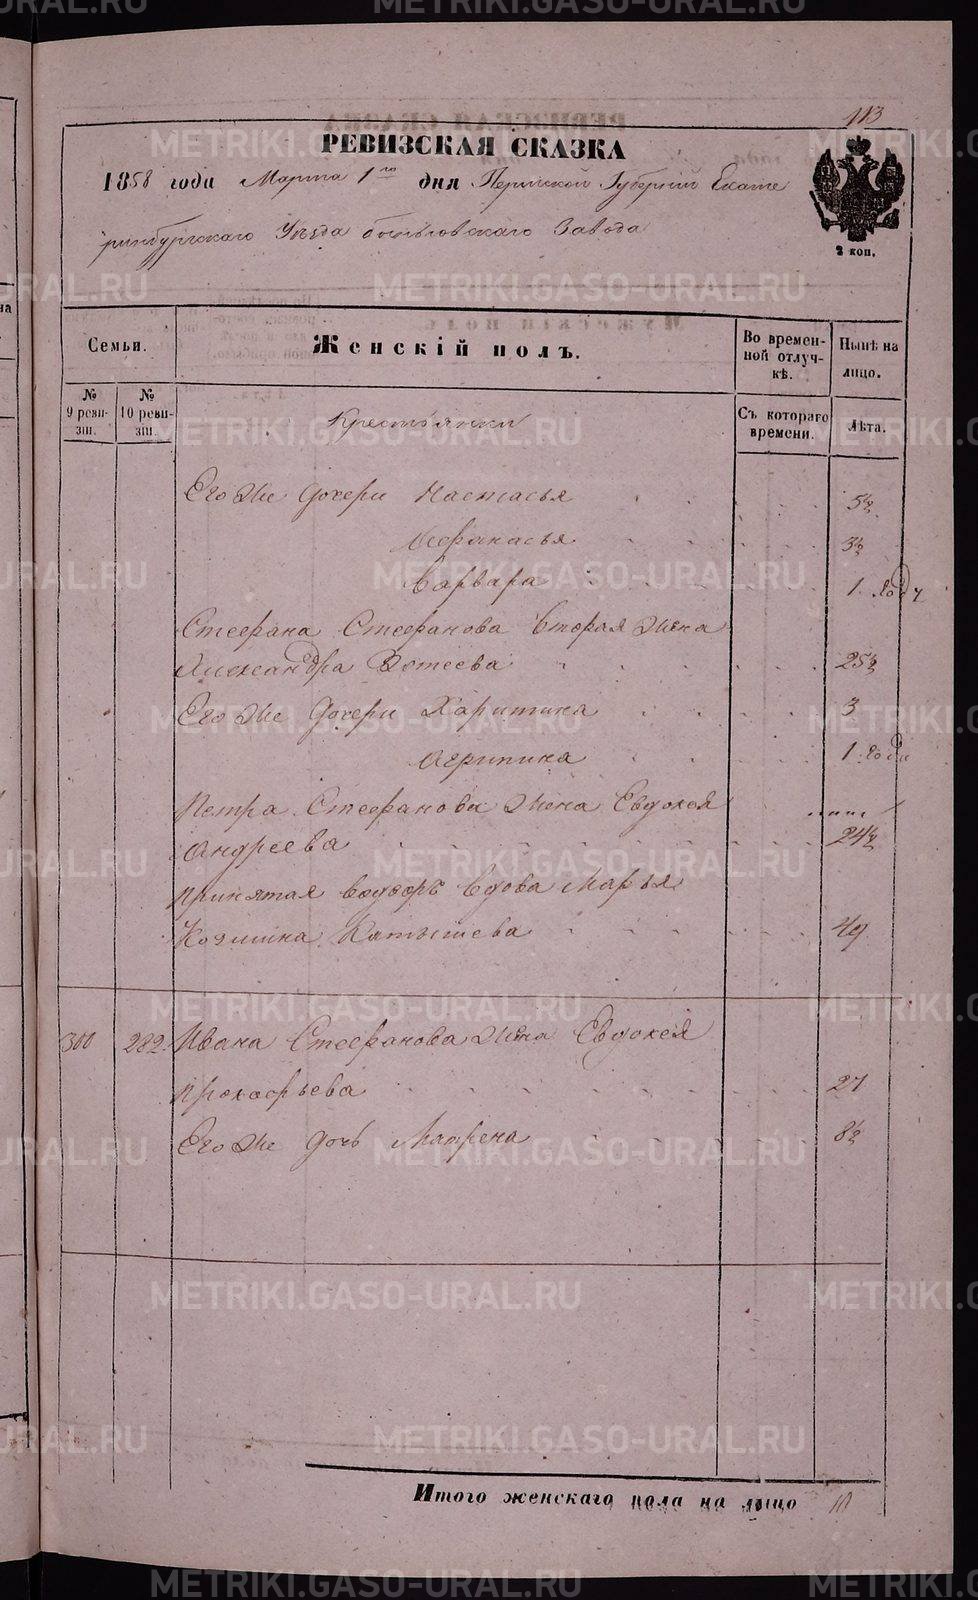 113
РЕВИЗСКАЯ СКАЗКА
1858 года Марта 1го дня Пермской Губернiи Екате
ринбургскаго Уѣзда Завода
2 коп.
Семьи.
Женскiй полъ.
Во времен-
ной отлуч-
кѣ.
Нынѣ на
лицо.
№
9 реви-
зiи.
№
10 реви-
зiи.
Съ котораго
времени.
Лѣта.
Крестьянки
Его же дочери Настасья 5½
Афанасья 3½
Варвара 1. годъ
Стефана Стефанова вторая жена
Александра Фотеева 25½
Его же дочери Харитина 3
Агрипина 1. годъ
Петра Стефанова жена Евдокея
Андреева 24½
принятая вдова Марья
Козмина Катышева 49
300 282. Ивана Стефанова жена Евдокея
прокофьева 27
Его же дочь Матрена 8½
Итого женскаго пола на лицо 10
METRIKI.GASO-URAL.RU